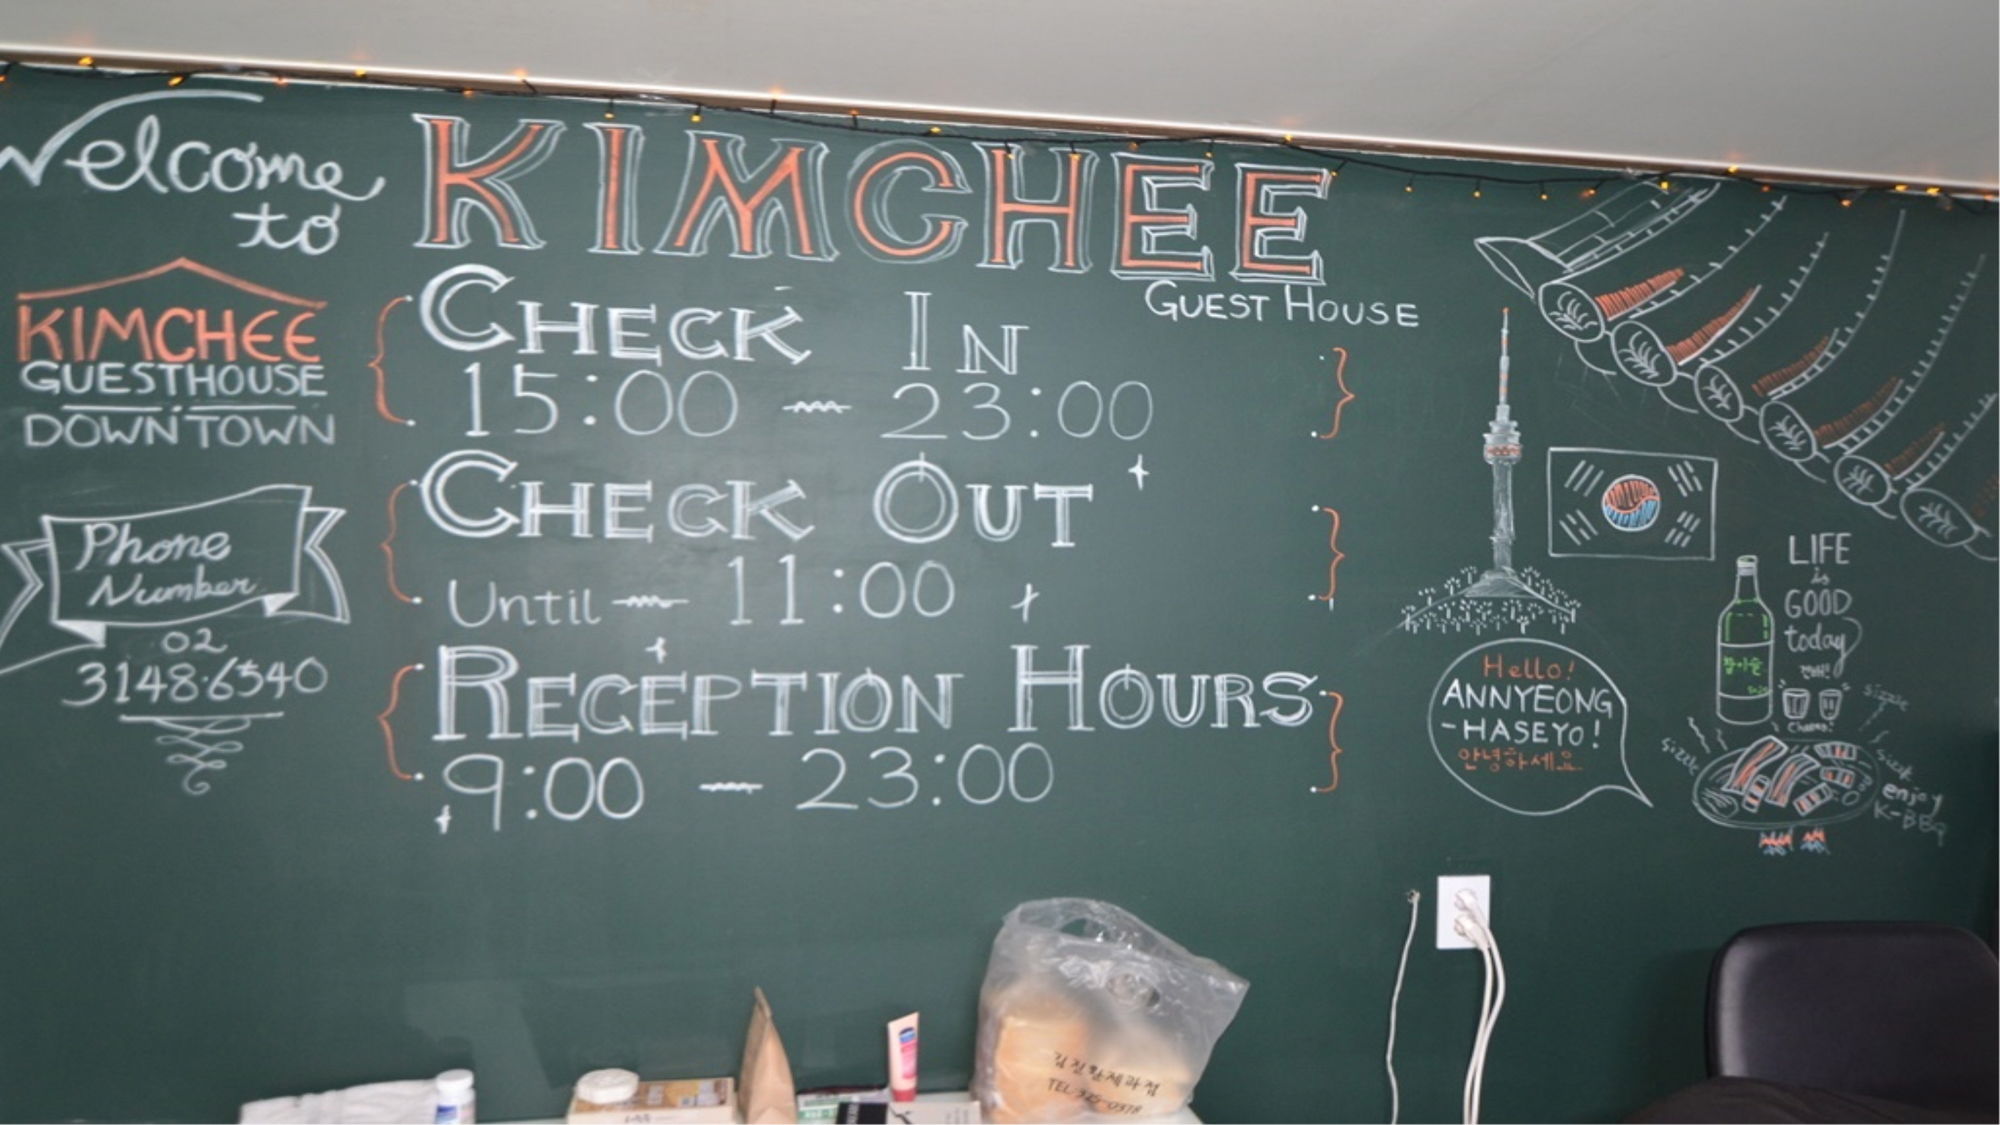 Welcome
to
KIMCHEE
GUEST HOUSE
KIMCHEE
GUESTHOUSE
DOWNTOWN
Phone
Number
02
3148·6540
CHECK IN
15:00 ~ 23:00
CHECK OUT
Until ~ 11:00
RECEPTION HOURS
9:00 ~ 23:00
Hello!
ANNYEONG
-HASEYO!
안녕하세요
LIFE
is
GOOD
today
참이슬
건배!
Cheers!
sizzle
sizzle
enjoy
K-BBQ
김진환제과점
TEL 325-0378